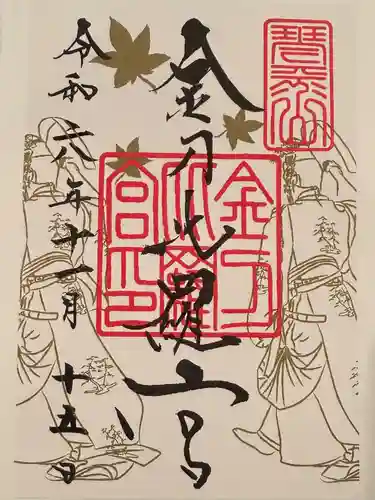 琴平山
金刀比羅宮
金刀
比羅
宮印
令和六年十一月十五日